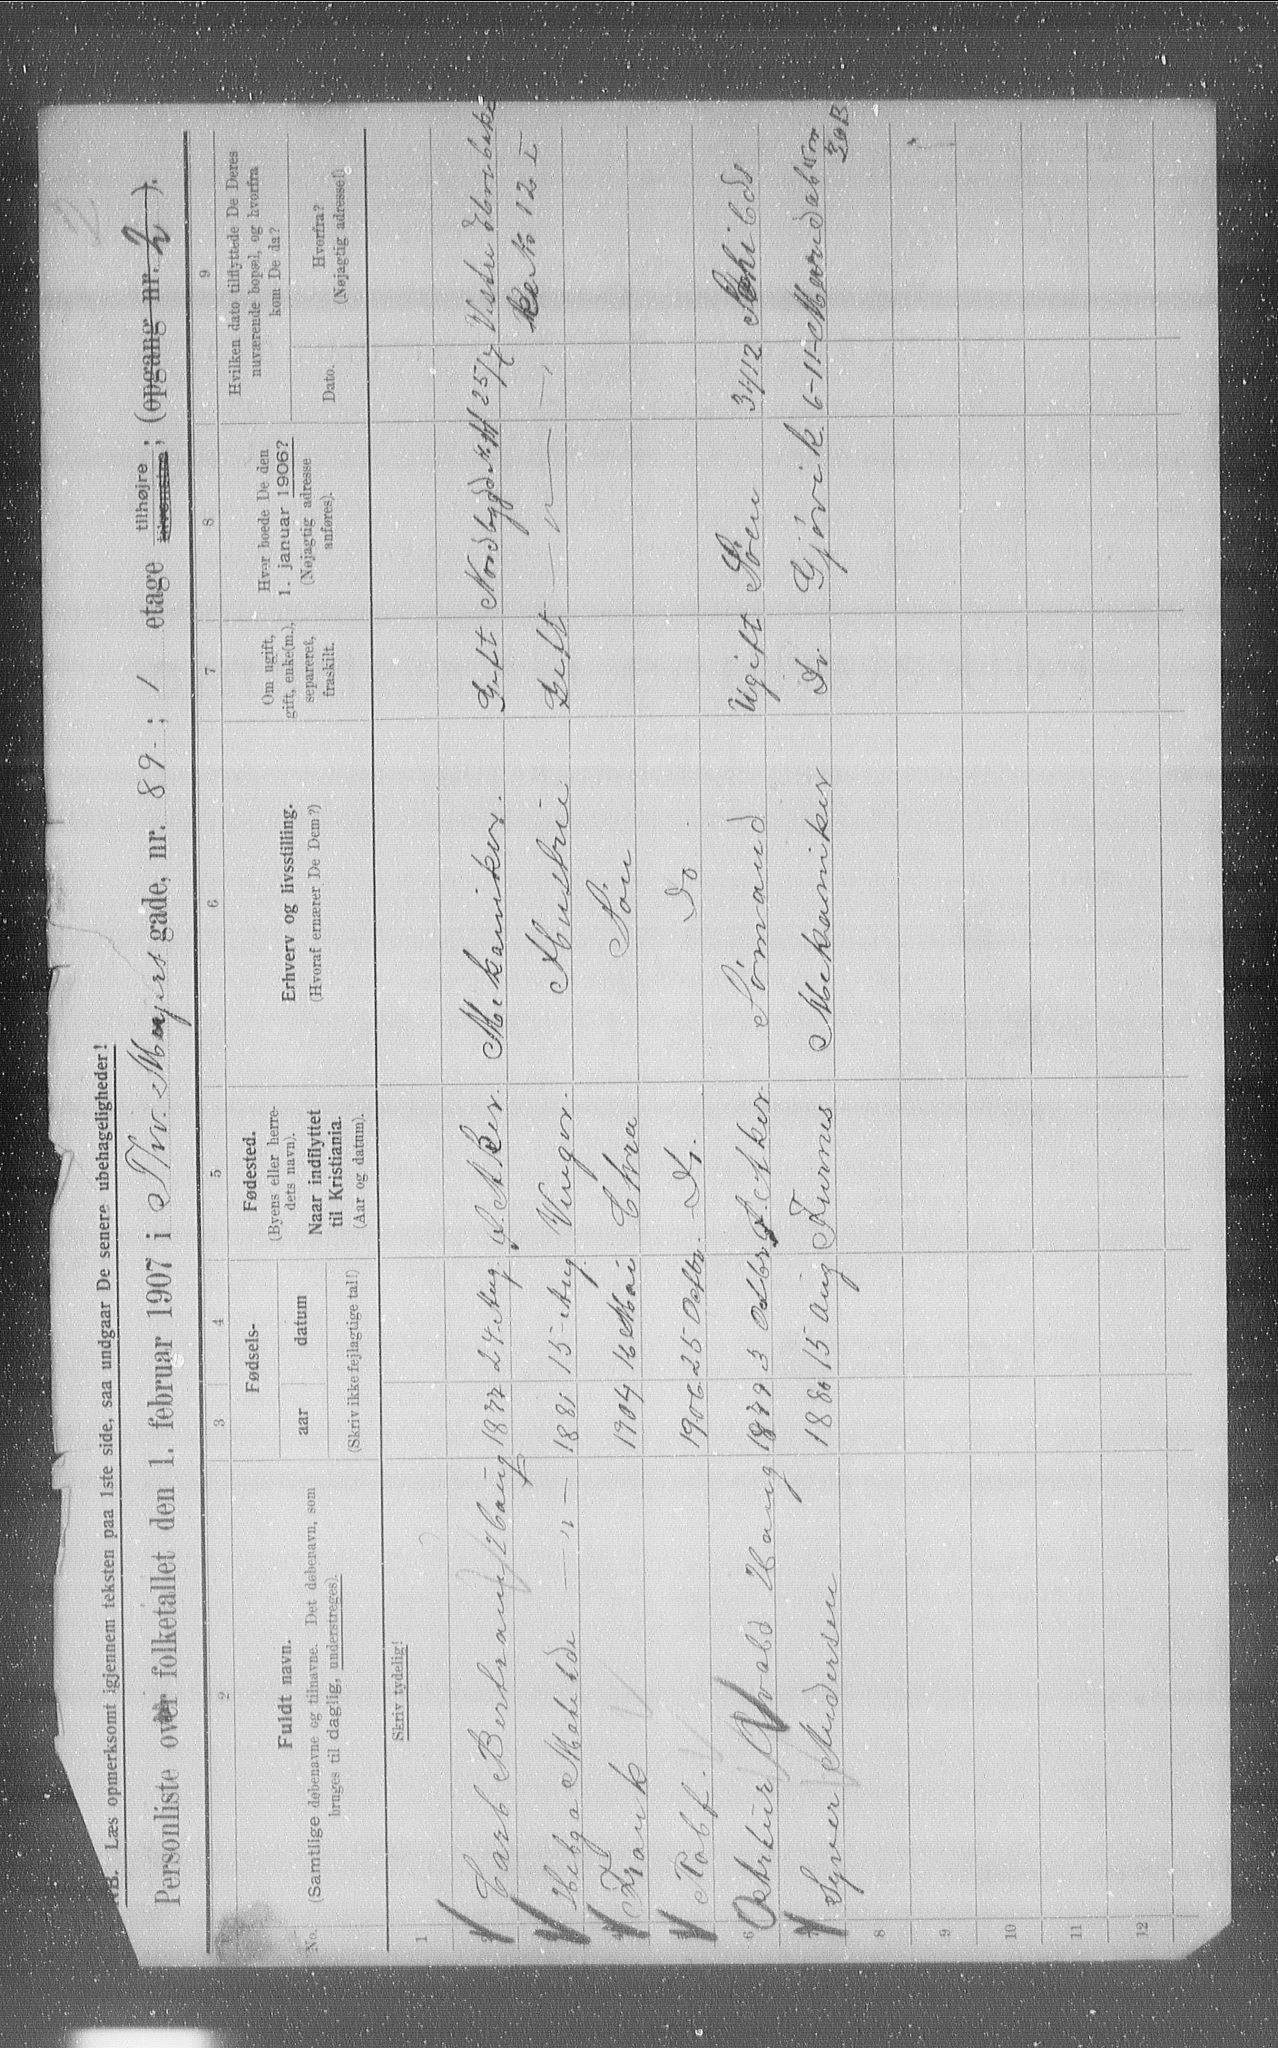 NB. Læs opmerksomt igjennem teksten paa 1ste side, saa undgaar De senere ubehageligheder!
Personliste over folketallet den 1. februar 1907 i Thv. Meyers gade, nr. 89 ; 1 etage tilhøjre tilvenstre ; (opgang nr. 2 ).
2 3 4 5 6 7 8 9
No.
Fuldt navn.
(Samtlige døbenavne og tilnavne. Det døbenavn, som
bruges til daglig, understreges).
Fødsels-
aar datum
(Skriv ikke fejlagtige tal!)
Fødested.
(Byens eller herre-
dets navn).
Naar indflyttet
til Kristiania.
(Aar og datum).
Erhverv og livsstilling.
(Hvoraf ernærer De Dem?)
Om ugift,
gift, enke(m.),
separeret,
fraskilt.
Hvor boede De den
1. januar 1906?
(Nøjagtig adresse
anføres).
Hvilken dato tilflyttede De Deres
nuværende bopæl, og hvorfra
kom De da?
Dato.
Hvorfra?
(Nøjagtig adresse!)
Skriv tydelig!
1
2 Carl Bertram Haug 1877 24 Aug. V. Aker. Mekaniker. Gift Nordbygd 25/7 Vestre
Helga Matilde —„— 1881 15 Aug Vinger. Hustru Gift —„— —„— 12 I
4 Frank 1904 16 Mai Chra Søn
Rolf. 1906 25 Octbr. Do. Do
6 Arthur Evald Haug 1879 3 Octbr V. Aker. Sømand Ugift Søen 31/12 Skibde
Syver Andersen 1880 15 Aug Furnes Mekaniker Do Gjøvik. 6-11- Maridalsvn
30B
8
9
10
11
12